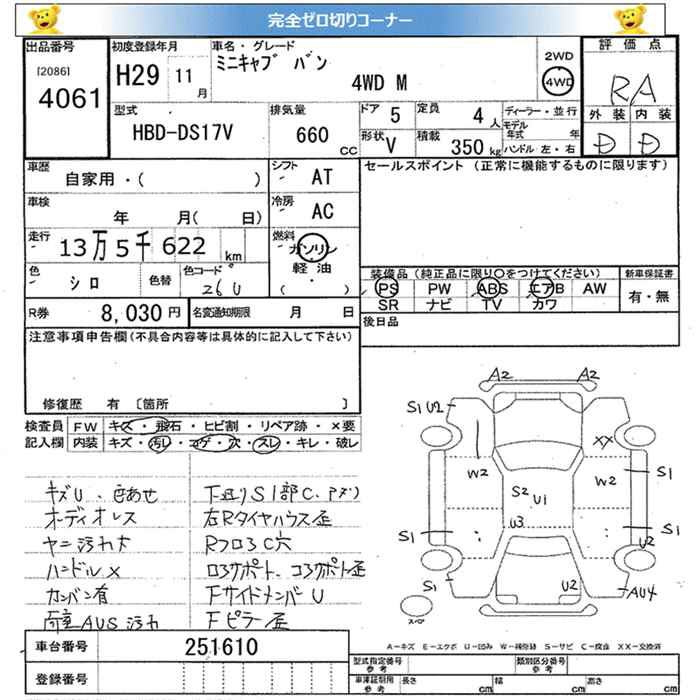 完全ゼロ切りコーナー
出品番号
[2086]
4061
初度登録年月
H29 11 月
車名・グレード
ミニキャブ バン
4WD M
2WD
4WD
評価点
RA
外装 内装
D D
型式
HBD-DS17V
排気量
660 CC
ドア 5
定員 4 人
形状 V
積載 350 kg
ディーラー・並行
モデル年式 年
ハンドル 左・右
車歴
自家用・( )
シフト AT
車検
年 月( 日)
冷房 AC
走行
13万5千622 km
燃料
ガソリン
軽油
( )
色 シロ 色替
色コード 26U
R券 8,030円
名変通知期限 月 日
セールスポイント(正常に機能するものに限ります)
装備品(純正品に限り○をつけてください)
PS PW ABS エアB AW
SR ナビ TV カワ
新車保証書
有・無
後日品
注意事項申告欄(不具合内容等は具体的に記入して下さい)
修復歴 有 [箇所 ]
検査員記入欄
FW キズ・飛石・ヒビ割・リペア跡・×要
内装 キズ・汚レ・コゲ・穴・スレ・キレ・破レ
キズU、色あせ
オーディオレス
ヤニ汚れ大
ハンドル×
カンバン有
下廻りS1部C、アズリ
右Rタイヤハウス歪
RフロアC穴
Fサイドメンバー U
Fピラー歪
A2 A2
S1 U2
XX
W2 W2
S1
S2 U1
U3
S1 S1
U2
S1 U2 AU4
スペア
A-キズ E-エクボ U-凹み W-補修跡 S-サビ C-腐食 XX-交換済
車台番号 251610
登録番号
型式指定番号 参考
類別区分番号 参考
車庫証明用 参考 長さ cm 幅 cm 高さ cm